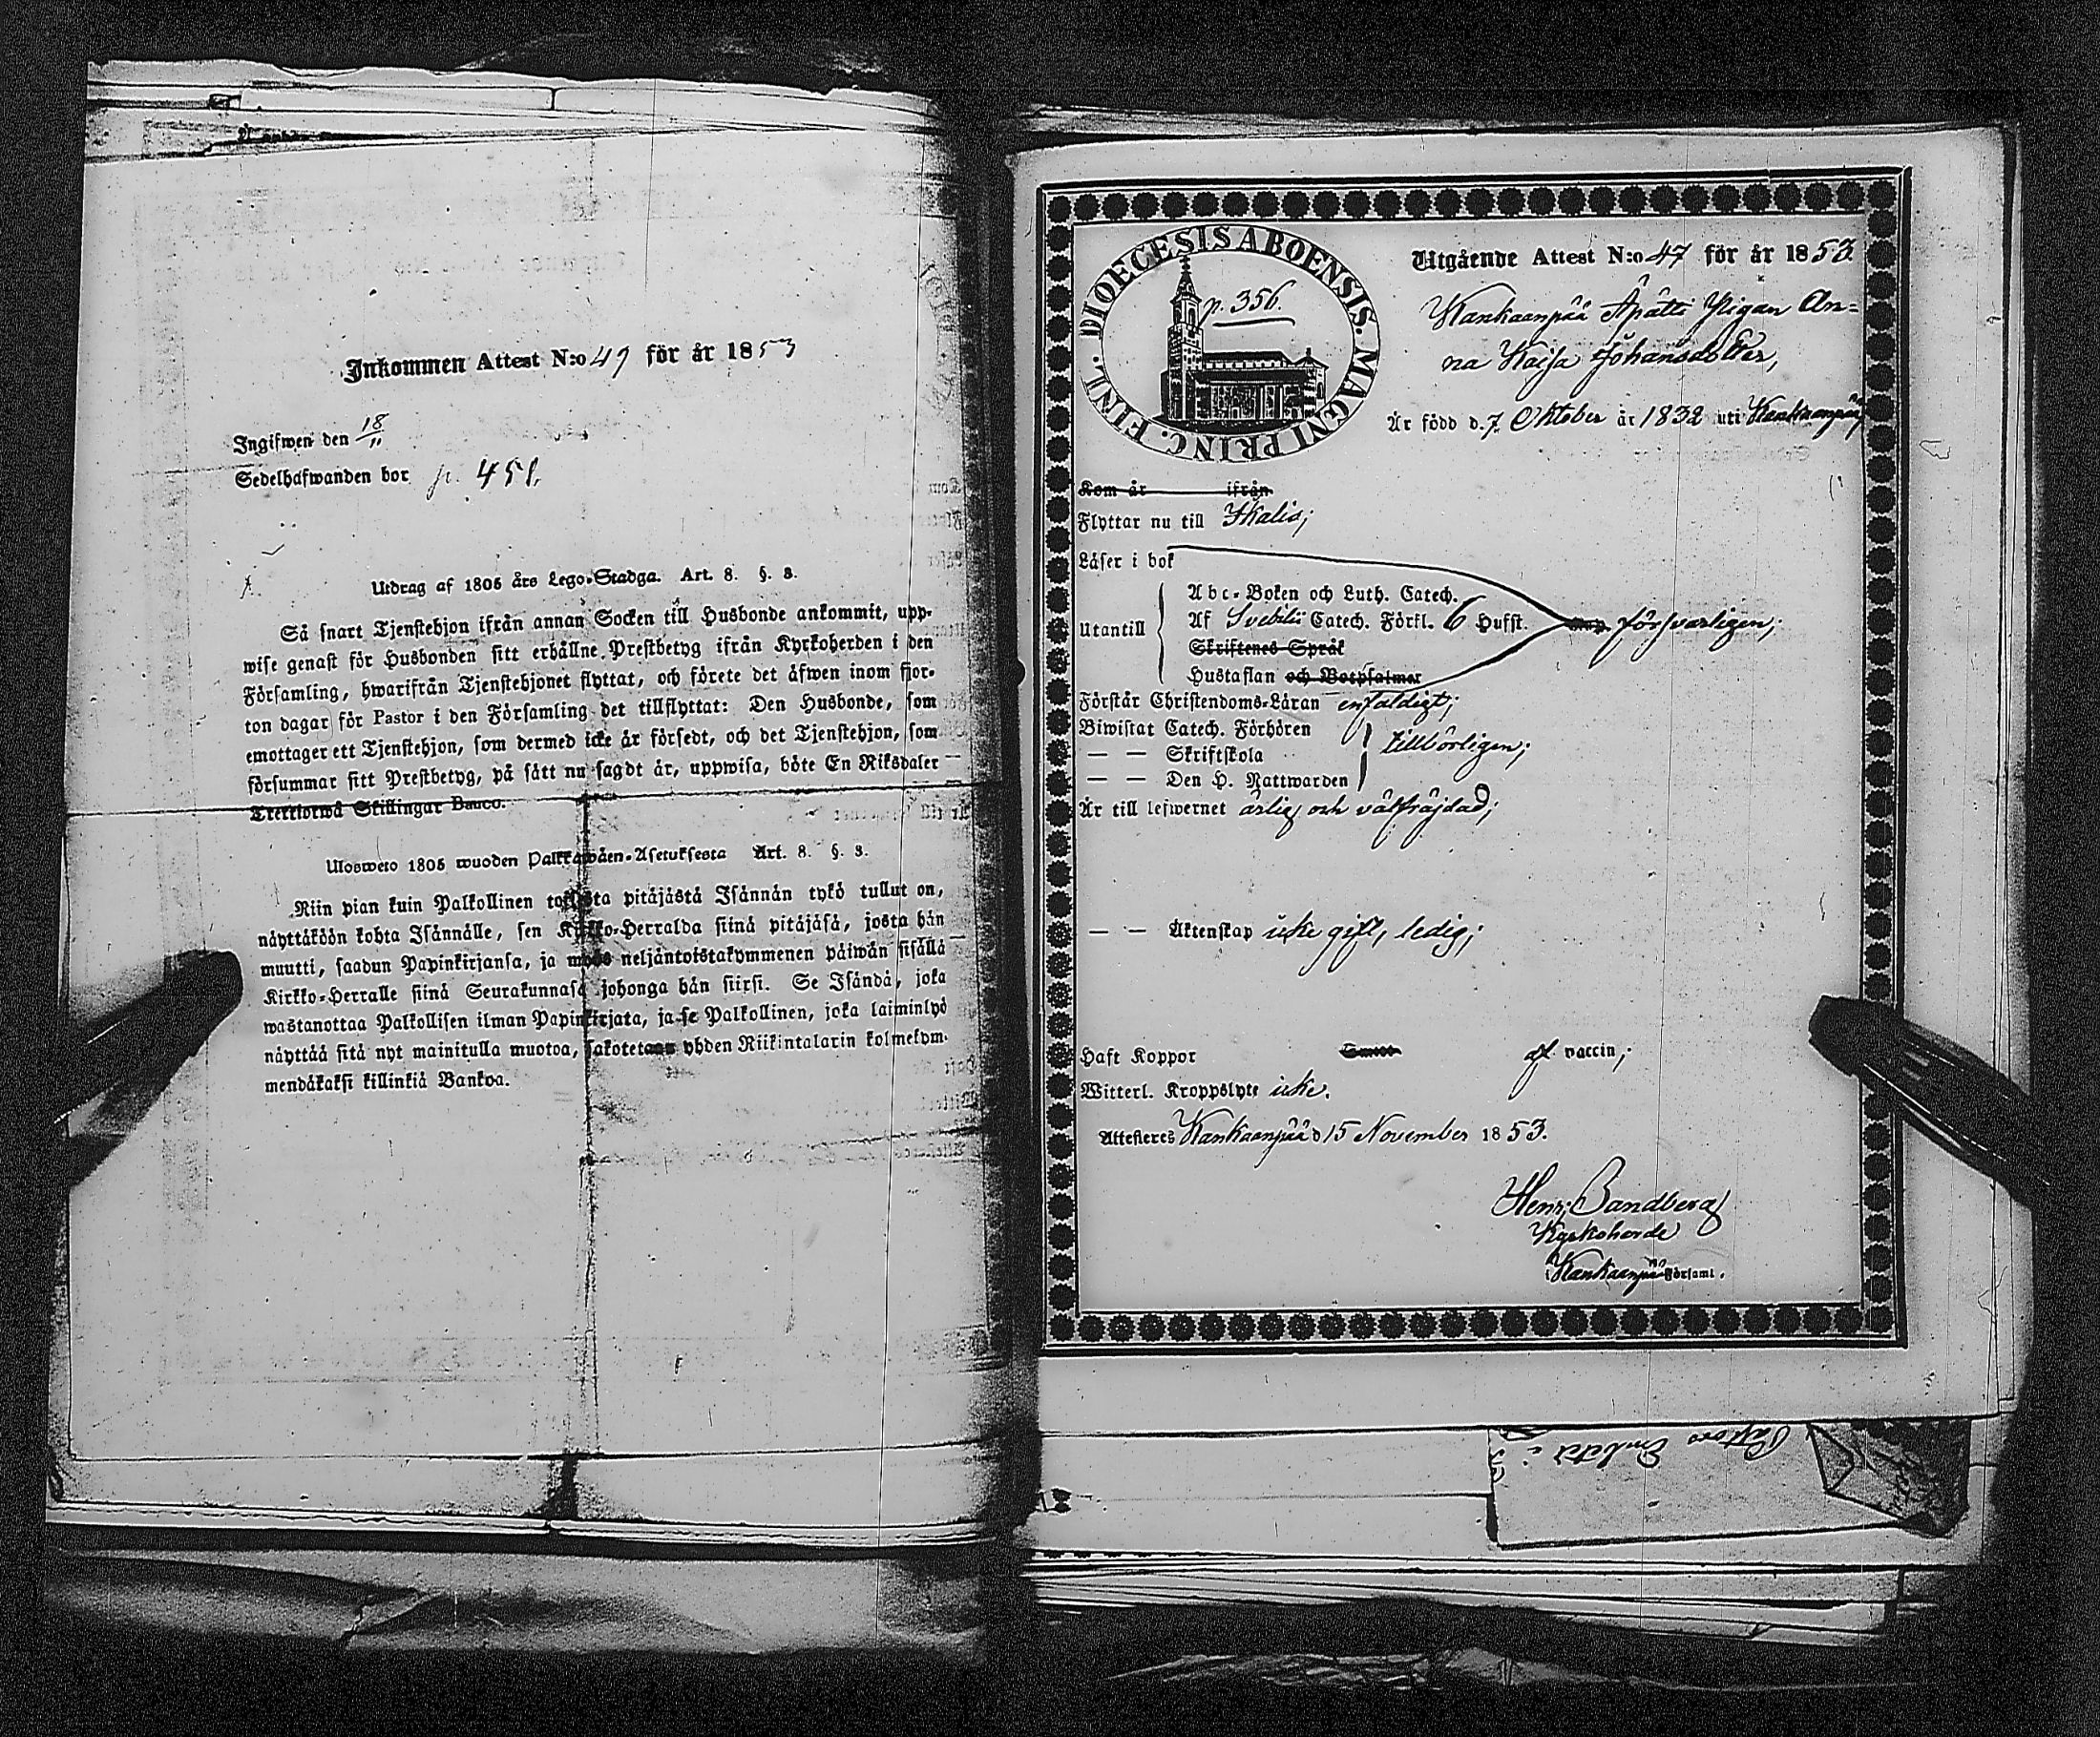 Inkommen Attest N:o 49 för år 1853
Ingifwen den 18/11
Sedelhafwanden bor p. 451.
Utdrag af 1805 års Lego-Stadga. Art. 8. §. 3.
Så snart Tjenstehjon ifrån annan Socken till Husbonde ankommit, upp-
wise genast för Husbonden sitt erhållne Prestbetyg ifrån Kyrkoherden i den
Församling, hwarifrån Tjenstehjonet flyttat, och förete det äfwen inom fjor-
ton dagar för Pastor i den Församling det tillflyttat: Den Husbonde, som
emottager ett Tjenstehjon, som dermed icke är försedt, och det Tjenstehjon, som
försummar sitt Prestbetyg, på sätt nu sagdt är, uppwisa, böte En Riksdaler
Trettiotwå Skillingar Banco.
Ulosweto 1805 wuoden Palkkawäen-Asetuksesta Art. 8. §. 3.
Niin pian kuin Palkollinen toisesta pitäjästä Isännän tykö tullut on,
näyttäköön kohta Isännälle, sen Kirkko-Herralda siinä pitäjäsä, josta hän
muutti, saadun Papinkirjansa, ja myös neljäntoistakymmenen päiwän sisällä
Kirkko-Herralle siinä Seurakunnasa johonga hän siirsi. Se Isändä, joka
wastanottaa Palkollisen ilman Papinkirjata, ja se Palkollinen, joka laiminlyö
näyttää sitä nyt mainitulla muotoa, sakotetaan yhden Riikintalarin kolmekym-
mendäkaksi killinkiä Bankoa.
DIOECESIS ABOENSIS. MAGNI PRINC. FINL.
p. 356.
Utgående Attest N:o 47 för år 1853
Kankaanpää Äpätti Pigan An-
na Kaisa Johansdotter,
Är född d. 7. Oktober år 1832 uti Kankaanpää
Kom år ifrån
Flyttar nu till Ikalis;
Läser i bok
Utantill
Abc-Boken och Luth. Catech.
Af Svebilii Catech. Förkl. 6 Hufst. försvarligen;
Skriftenes Språk
Hustaflan och Botpsalmer
Förstår Christendoms-Läran enfaldigt;
Biwistat Catech. Förhören
— — Skriftskola tillbörligen;
— — Den H. Nattwarden
Är till lefwernet ärlig och välfräjdad;
— — Äktenskap icke gift, ledig;
Haft Koppor af vaccin;
Witterl. Kroppslyte icke.
Attesteres Kankaanpää d 15 November 1853.
Henr. Sandberg
Kyrkoherde
i Kankaanpää Församl.